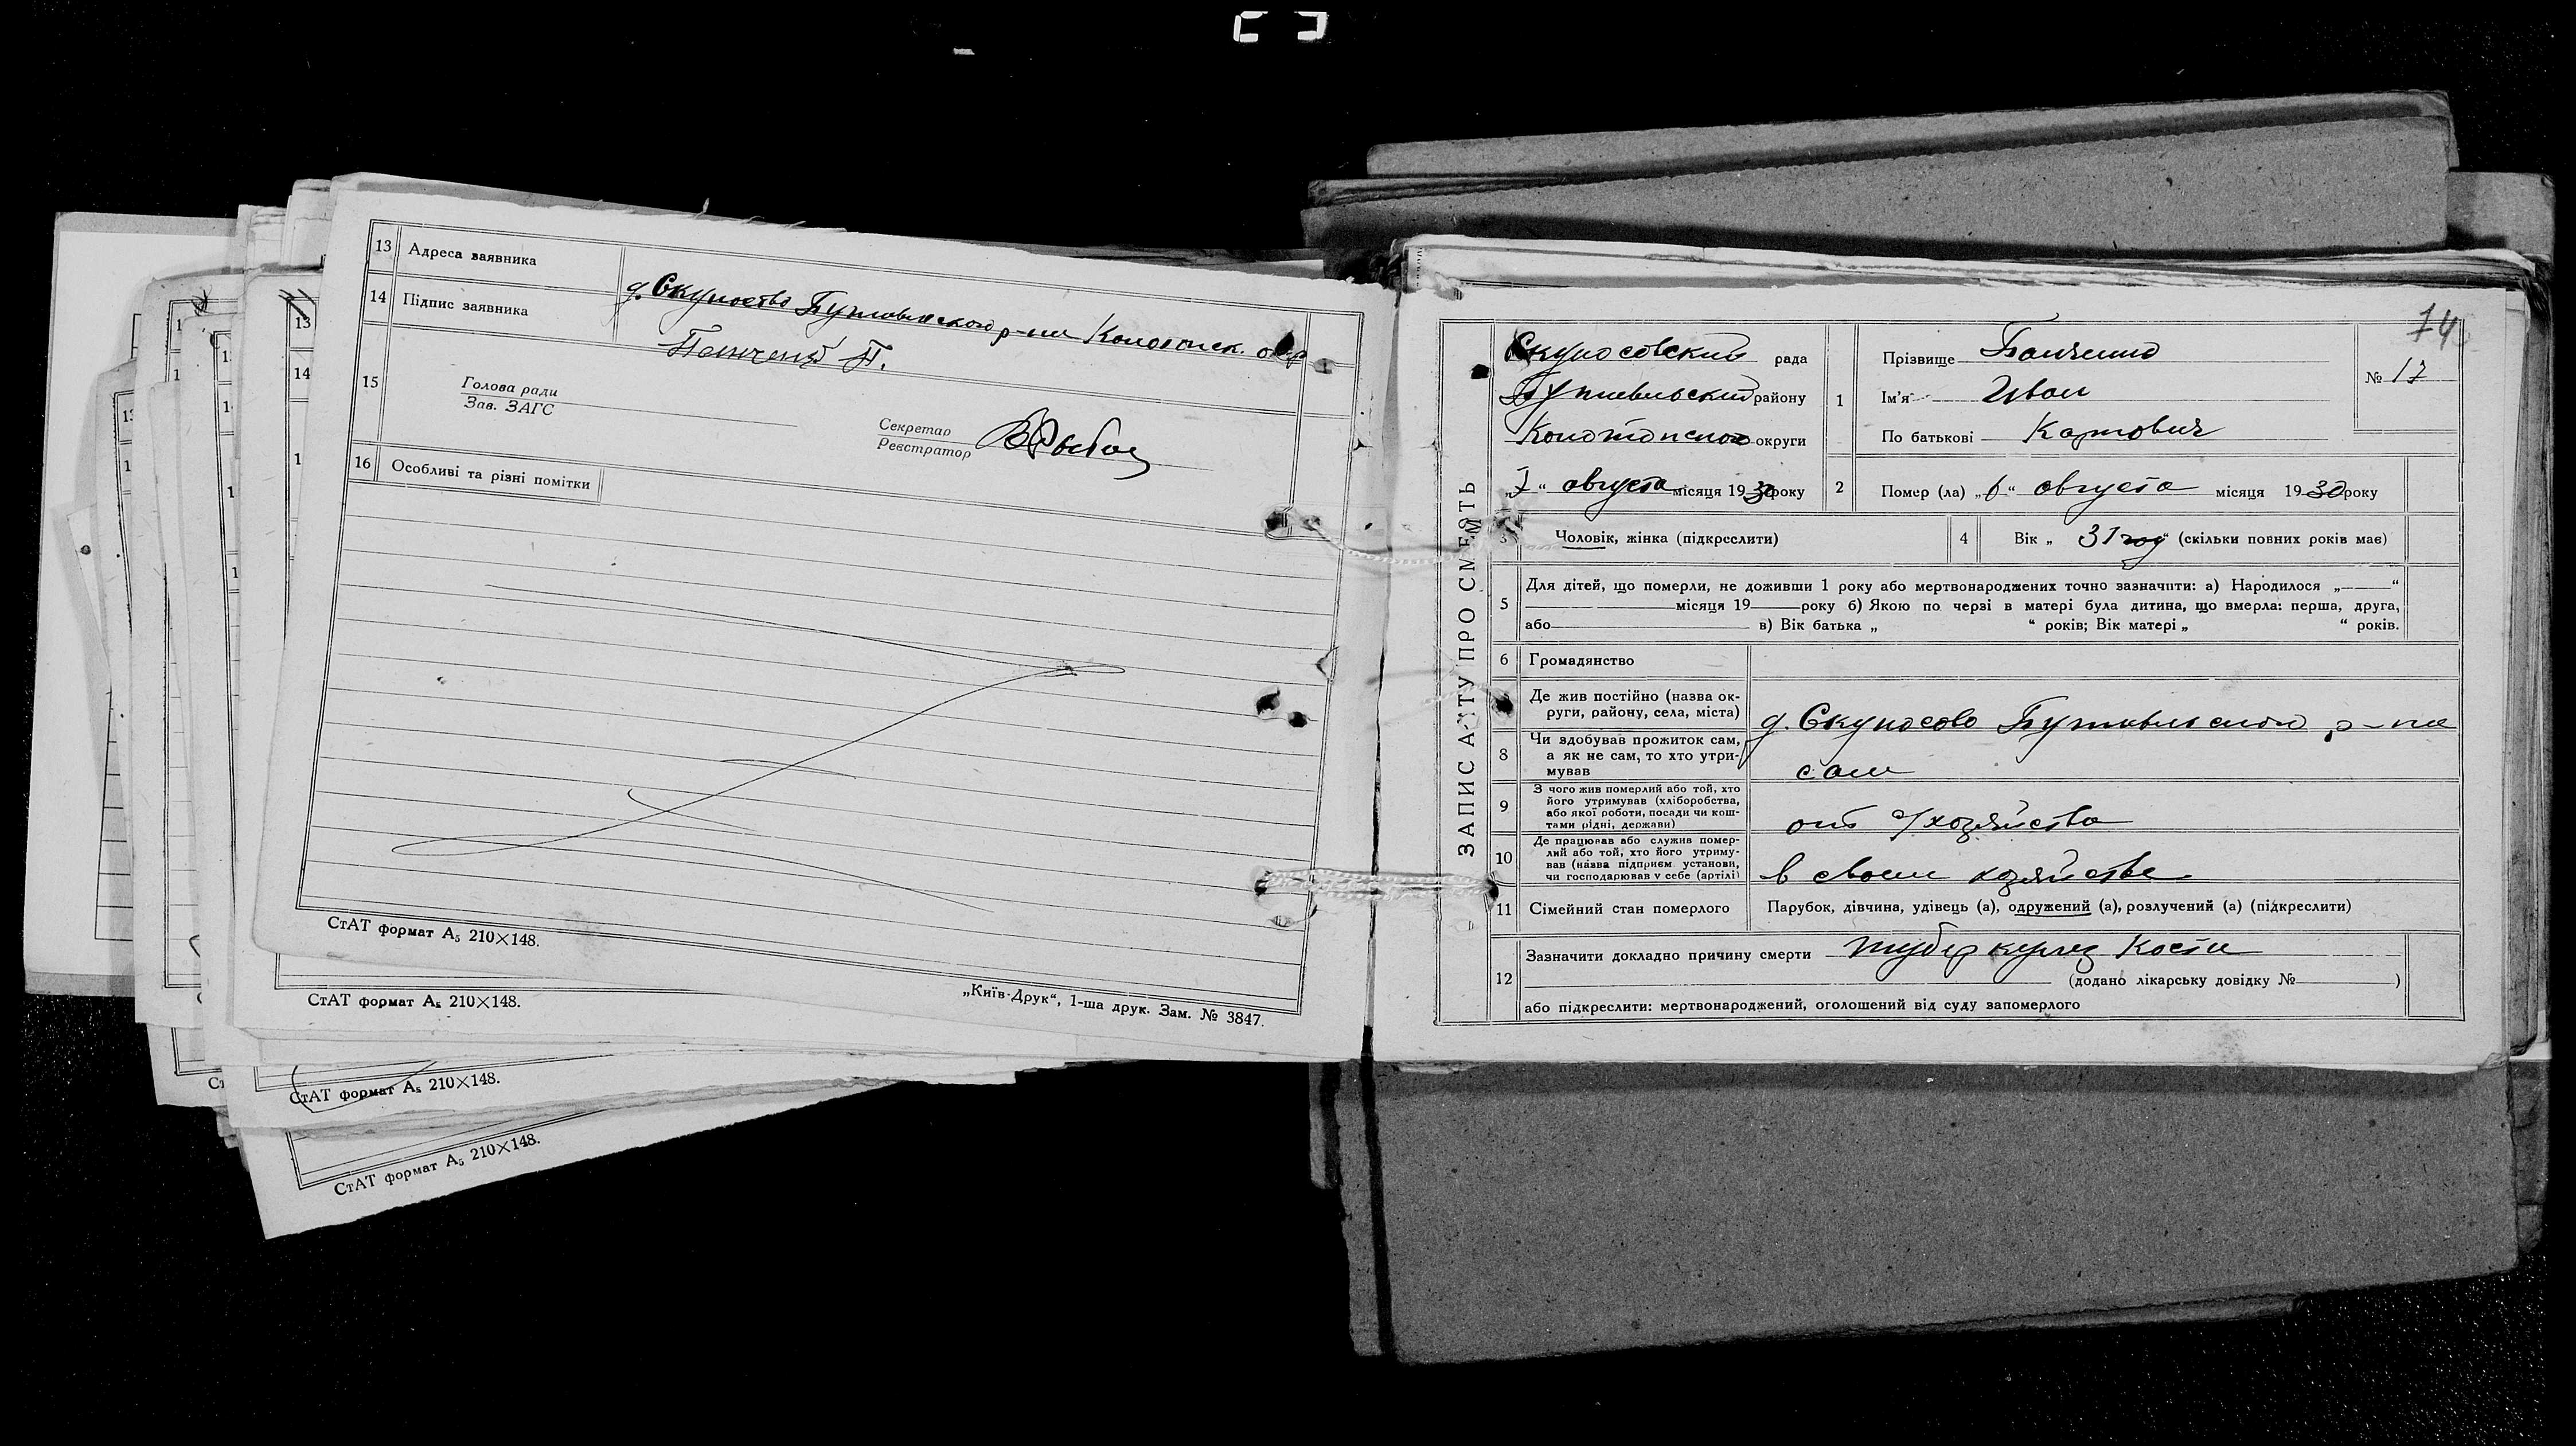 13 Адреса заявника
д. Скуносово Путивльского р-на Конотопск. окр
14 Підпис заявника
Панченко П.
15
Голова ради
Зав. ЗАГС
Секретар
Реєстратор
16 Особливі та різні помітки
СтАТ формат А5 210×148.
„Київ-Друк“, 1-ша друк. Зам. № 3847.
СтАТ формат А5 210×148.
СтАТ формат А5 210×148.
СтАТ формат А5 210×148.
74
ЗАПИС АКТУ ПРО СМЕРТЬ
Скуносовский рада
Путивльский району
Конотопского округи
„7“ августа місяця 1930 року
1 Прізвище Панченко
№ 17
Ім'я Иван
По батькові Карпович
2 Помер (ла) „6“ августа місяця 1930 року
3 Чоловік, жінка (підкреслити)
4 Вік „31 год“ (скільки повних років має)
5 Для дітей, що померли, не доживши 1 року або мертвонароджених точно зазначити: а) Народилося „ “
місяця 19 року б) Якою по черзі в матері була дитина, що вмерла: перша, друга,
або в) Вік батька „ “ років; Вік матері „ “ років.
6 Громадянство
Де жив постійно (назва ок-
руги, району, села, міста)
д. Скуносово Путивльского р-на
8 Чи здобував прожиток сам,
а як не сам, то хто утри-
мував
сам
9 З чого жив померлий або той, хто
його утримував (хліборобства,
або якої роботи, посади чи кош-
тами рідні, держави)
от с/хозяйства
10 Де працював або служив помер-
лий або той, хто його утриму-
вав (назва підприєм. установи,
чи господарював у себе (артілі)
в своем хозяйстве
11 Сімейний стан померлого
Парубок, дівчина, удівець (а), одружений (а), розлучений (а) (підкреслити)
12 Зазначити докладно причину смерти туберкулез кости
(додано лікарську довідку № )
або підкреслити: мертвонароджений, оголошений від суду запомерлого